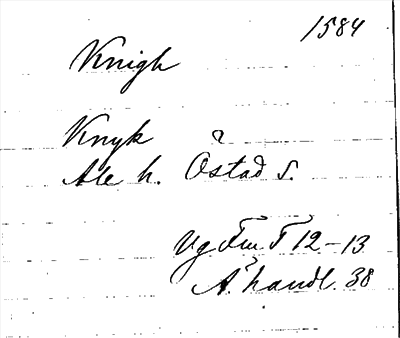 1584
Knigh
Knyk
Ale h. Östad s.
Vg Fm. F 12-13
Ä. handl. 38